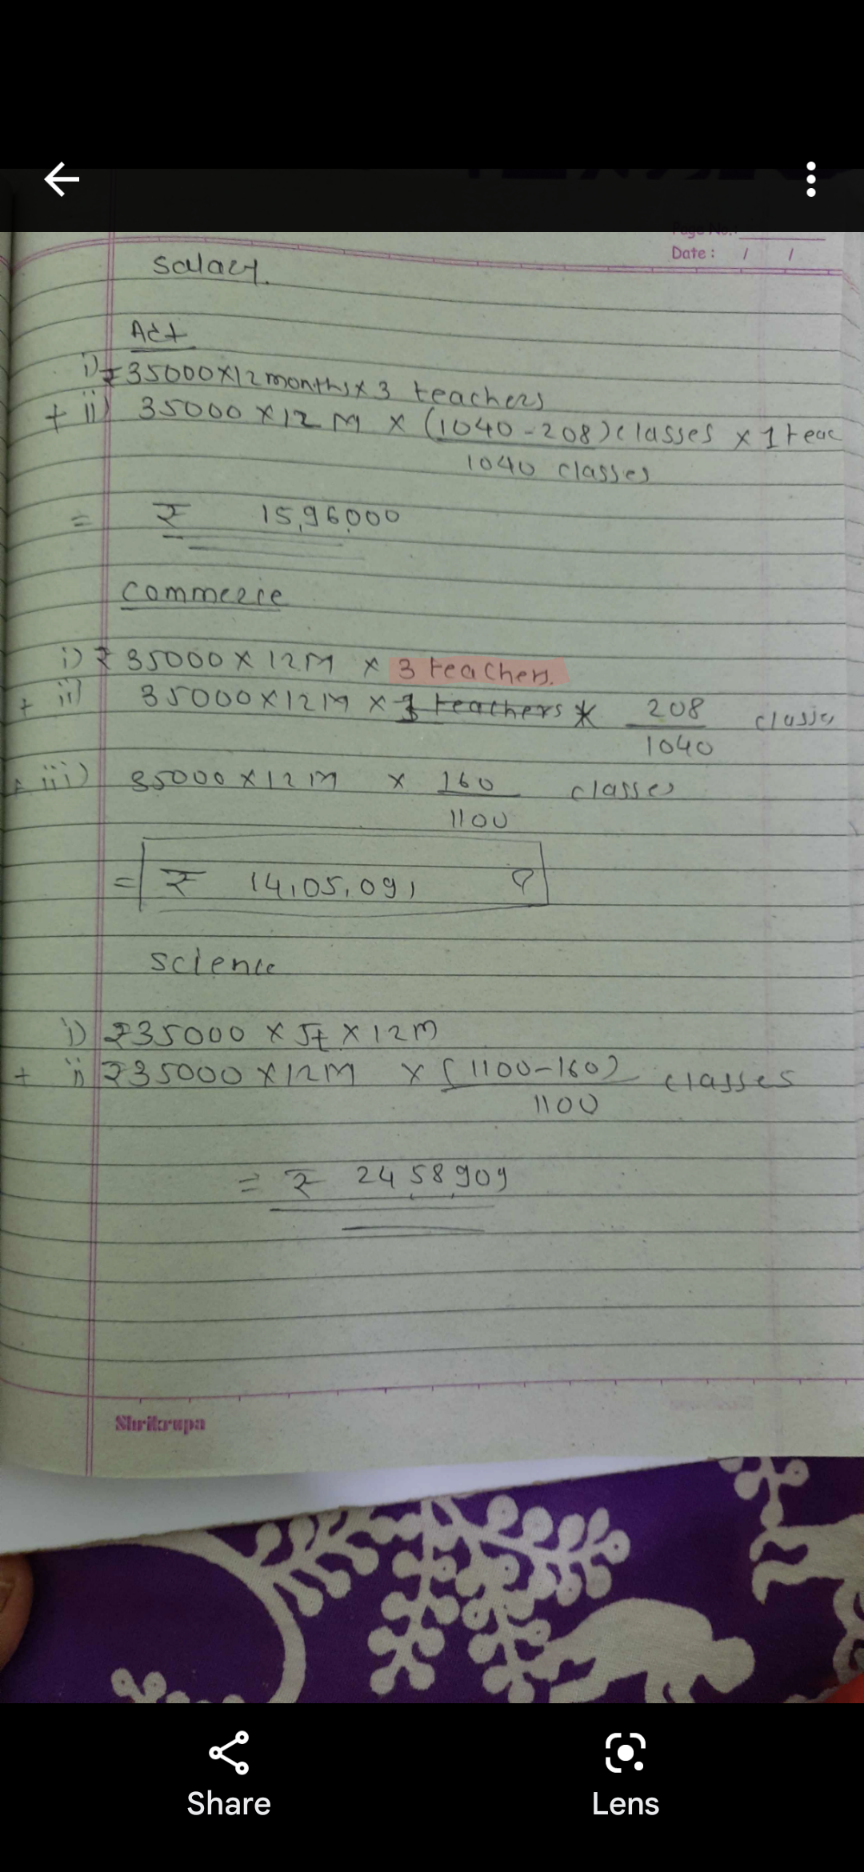 Date : / /
Salary.
Act
i) ₹35000×12months×3 teachers
+ ii) 35000 ×12 M × (1040-208) classes × 1 teac
1040 classes
= ₹ 15,96,000
Commerce
i) ₹ 35000 × 12M × 3 teachers.
+ ii) 35000×12M × 1 teachers × 208 classes
1040
+ iii) 35000 ×12 M × 160 classes
1100
= ₹ 14,05,091
Science
i) ₹35000 × 5t × 12M
+ ii) ₹35000 ×12M × (1100-160) classes
1100
= ₹ 24,58,909
Shrikrupa
Share
Lens